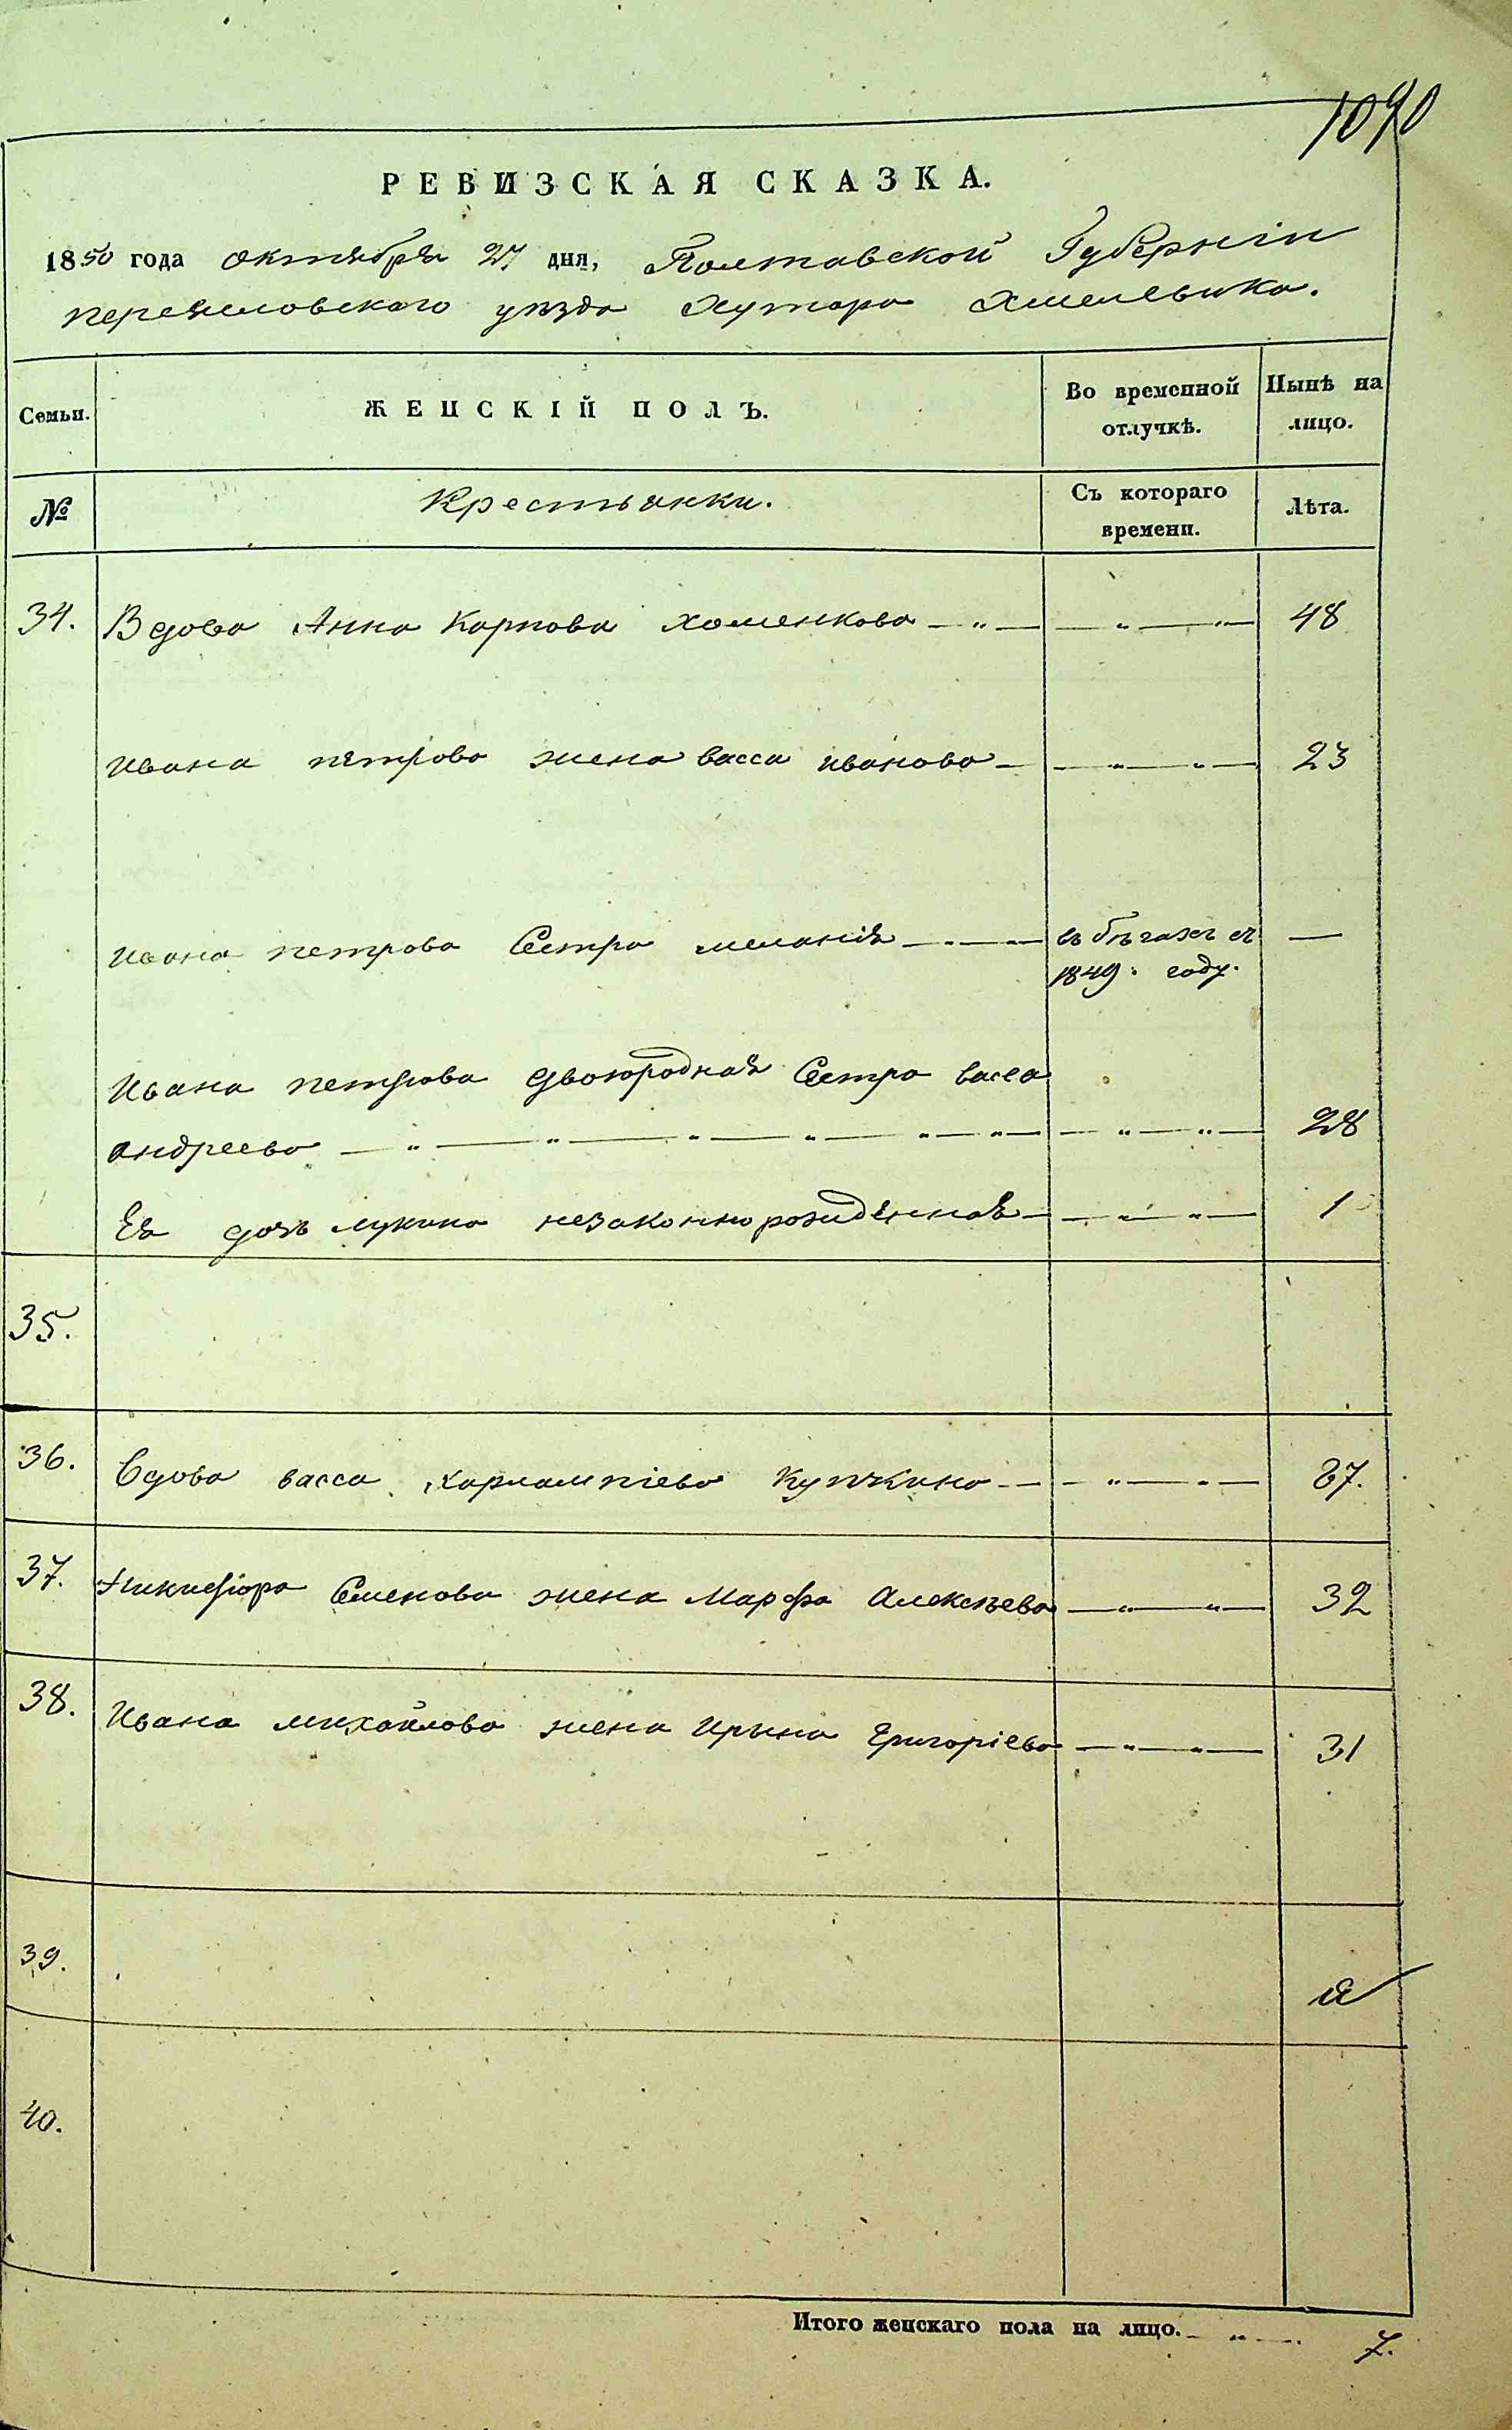 1090
РЕВИЗСКАЯ СКАЗКА.
1850 года октября 27 дня, Полтавской Губерніи
переяславского уѣзда Хутора Хмелевика.
Семьи. ЖЕНСКІЙ ПОЛЪ. Во временной отлучкѣ. Нынѣ на лицо.
№ Крестьянки. Съ котораго времени. Лѣта.
34. Вдова Анна Карпова Хоменкова 48
Ивана петрова жена васса иванова 23
Ивана петрова Сестра меланія въ бѣгахъ съ —
1849. году.
Ивана петрова двоюродная Сестра васса
андреева 28
Ея дочь лукина незаконнорожденная 1
35.
36. Вдова васса харлампіева 37.
37. Никифора Семенова жена Марфа Алексѣева 32
38. Ивана михайлова жена Ирина Григоріева 31
39.
40.
Итого женскаго пола на лицо. 7.